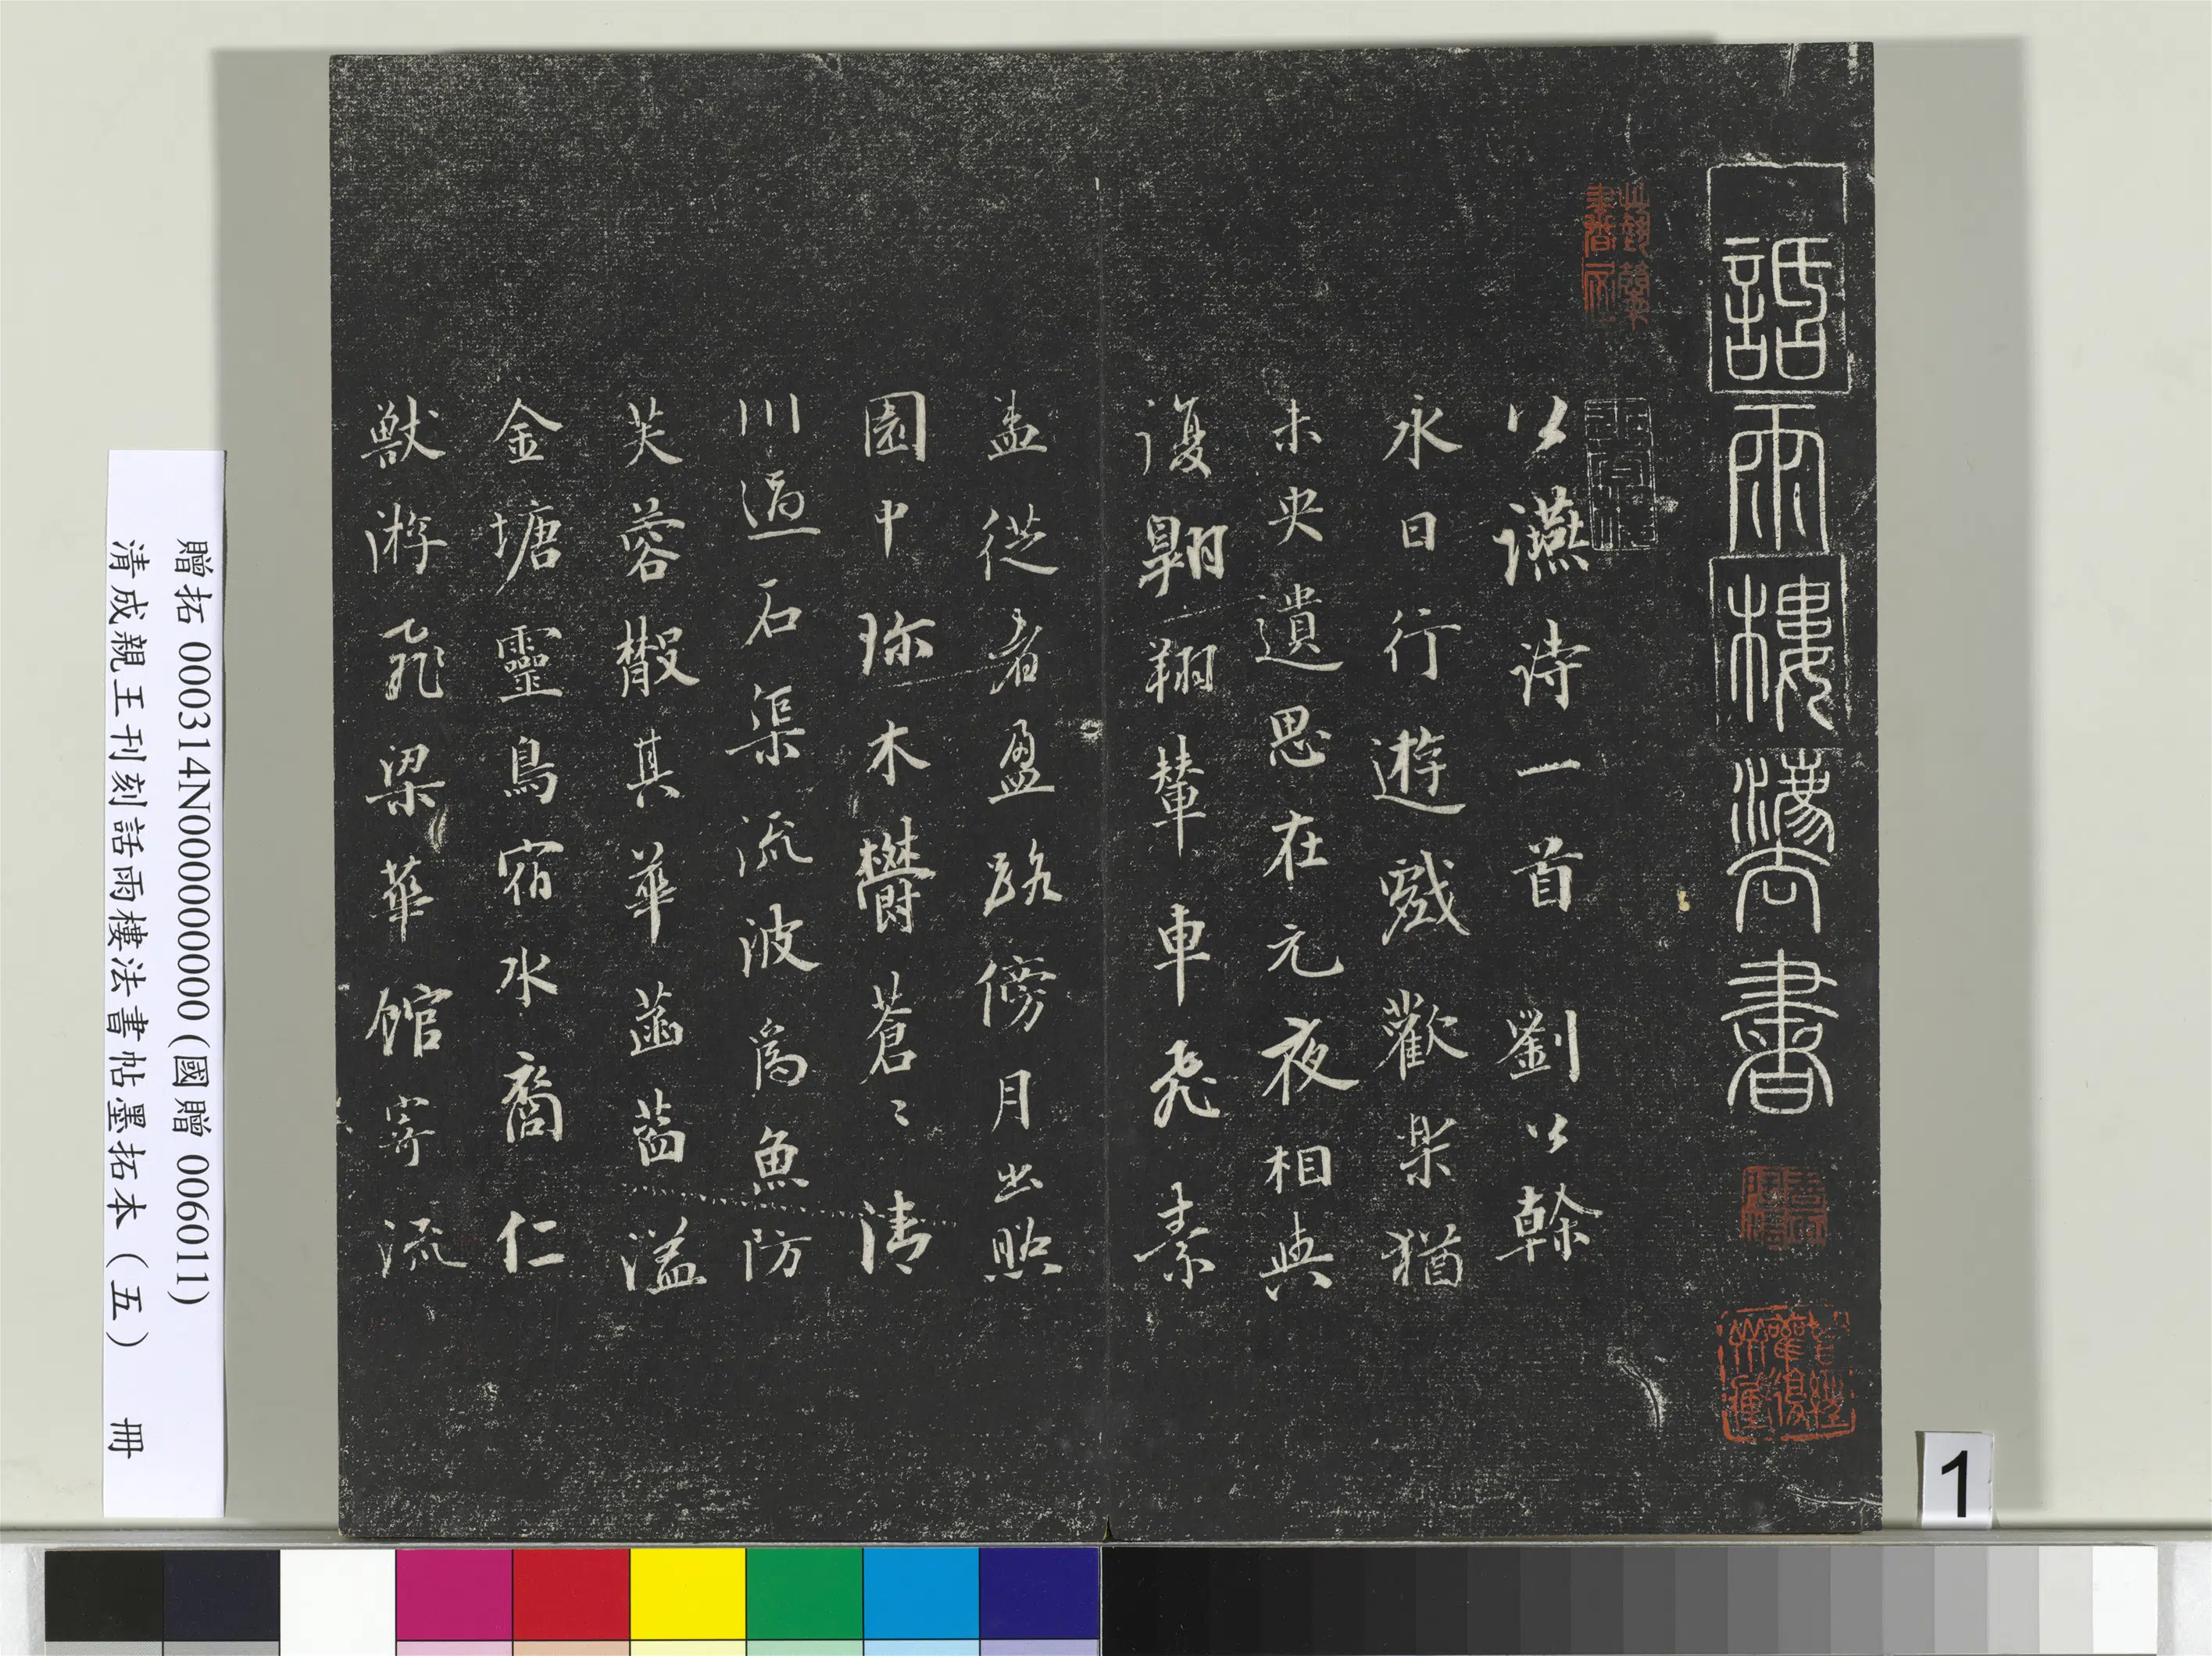 詒雨樓灋書
公讌詩一首　劉公幹
永日行遊戲歡樂猶
未央遺思在元夜相與
復翱翔輦車飛素
盖從者盈路傍月出照
園中珎木鬱蒼〻清
川過石渠流波爲魚防
芙蓉散其華菡萏溢
金塘靈鳥宿水裔仁
獸游飛梁華館寄流
贈拓 000314N000000000(國贈 006011)
清成親王刊刻話雨樓法書帖墨拓本（五） 冊
1